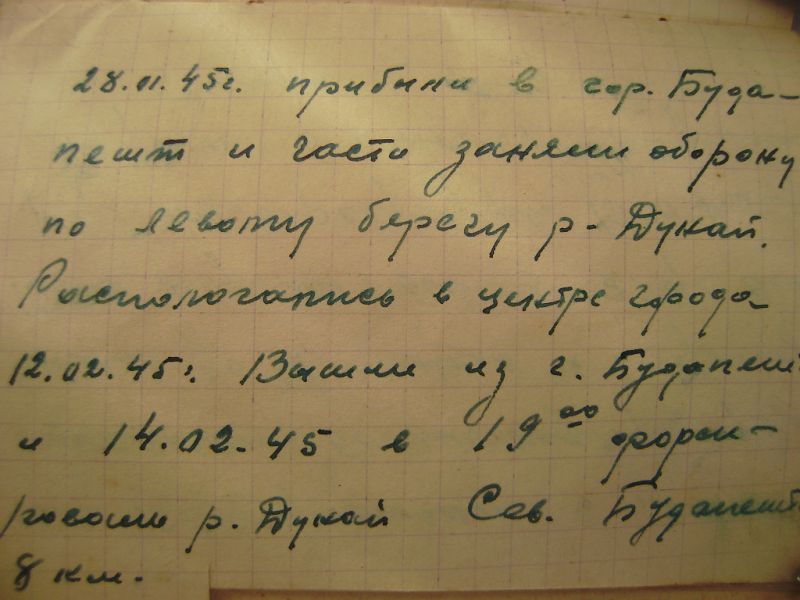 28.01.45г. прибыли в гор. Буда-
пешт и части заняли оборону
по левому берегу р. Дунай.
Распологались в центре города
12.02.45г. Вышли из г. Будапешт
и 14.02.45 в 19 00 форси-
ровали р. Дунай Сев. Будапешт
8 км.